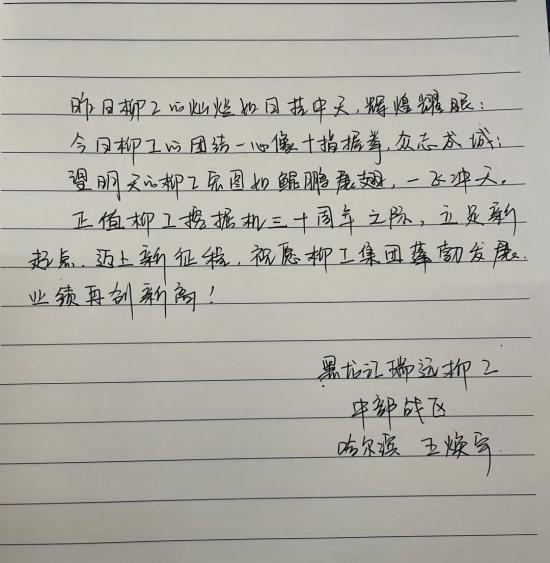 昨日柳工心灿烂如日挂中天,辉煌耀眼;
今日柳工心团结一心像十指握拳,众志成城;
望明天心柳工宏图如鲲鹏展翅,一飞冲天。
正值柳工挖掘机三十周年之际,立足新
起点,迈上新征程,祝愿柳工集团蓬勃发展。
业绩再创新高!
黑龙江瑞远柳工
中部战区
哈尔滨 王焕宇